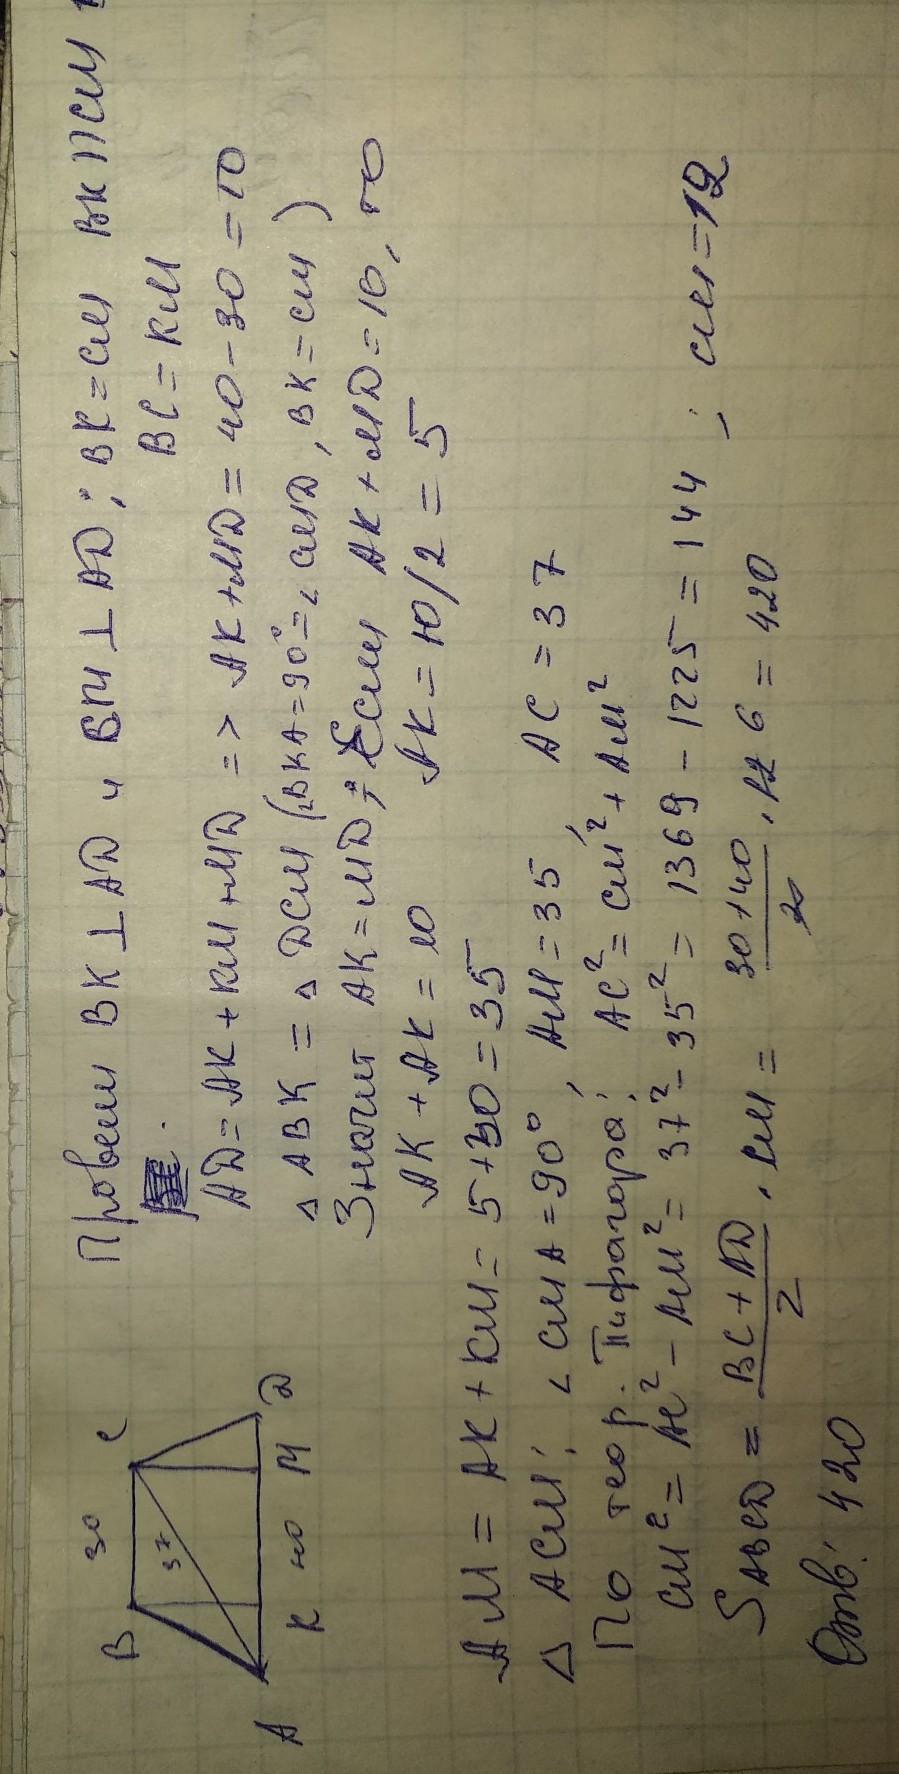 B 30 C
37
A K 40 M D
Провем BK ⊥ AD и ВМ ⊥ AD; BK = CM BK ∩ CM
BC = KM
AD = AK + KM + MD => AK + MD = 40 - 30 = 10
△ ABK = △ DCM (∠BKA = 90° = ∠ CMD, BK = CM)
Значит AK = MD; Если AK + MD = 10, то
AK + AK = 10 AK = 10/2 = 5
AM = AK + KM = 5 + 30 = 35
△ ACM; ∠ CMA = 90°, AM = 35, AC = 37
По теор. Пифагора; AC² = CM² + AM²
CM² = AC² - AM² = 37² - 35² = 1369 - 1225 = 144; CM = 12
S ABCD = BC + AD / 2 . CM = 30 + 40 / 2 . 12 6 = 420
Отв: 420